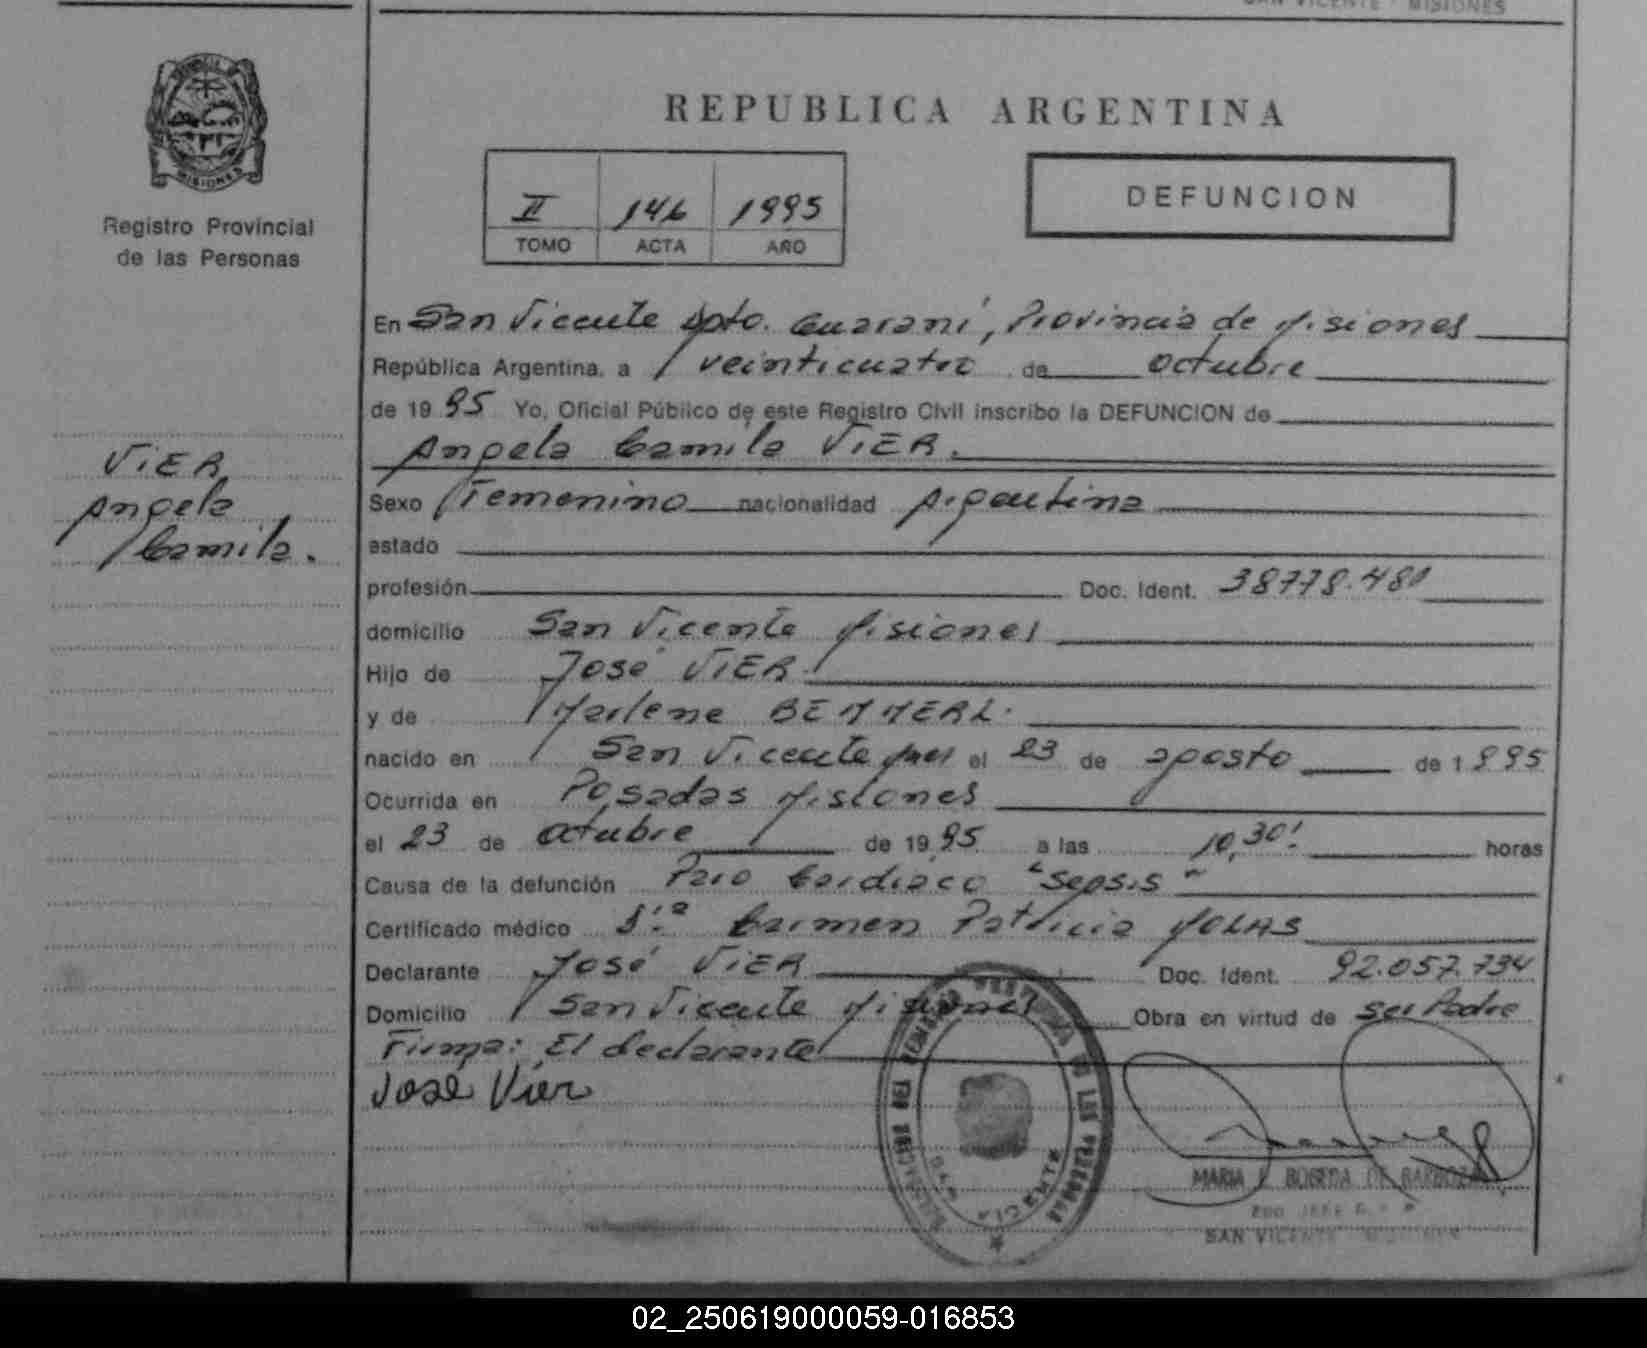 REPUBLICA ARGENTINA
MISIONES
Registro Provincial
de las Personas
II 146 1995
TOMO ACTA AÑO
DEFUNCION
VIER
Angela
Camila.
En San Vicente Dpto. Guaraní, Provincia de Misiones
República Argentina, a veinticuatro de octubre
de 19 95 Yo, Oficial Público de este Registro Civil inscribo la DEFUNCION de
Angela Camila VIER.
Sexo Femenino nacionalidad Argentina
estado
profesión Doc. Ident. 38778.480
domicilio San Vicente Misiones
Hijo de José VIER
y de Marlene BEMMERL.
nacido en San Vicente Mnes el 23 de agosto de 1995
Ocurrida en Posadas Misiones
el 23 de octubre de 19 95 a las 10,30' horas
Causa de la defunción Paro Cardiaco "Sepsis"
Certificado médico Carmen Patricia MOLAS
Declarante José VIER Doc. Ident. 92.057.734
Domicilio San Vicente Misiones Obra en virtud de ser Padre
Firma: El declarante
José Vier
MARIA DE BARBOZA
SAN VICENTE MISIONES
02_250619000059-016853